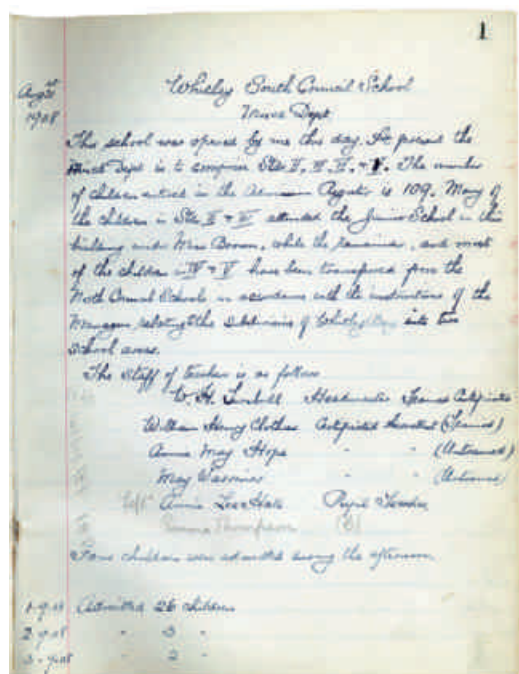 1
Augst
1908
Whitley South Council School
Mixed Dept
This school was opened by me this day. At present the
Mixed Dept is to comprise Stds II, III, IV, & V. The number
of children entered in the Admission Register is 109. Many of
the children in Stds II & III attended the Junior School in this
building under Miss Brown, while the remainder, and most
of the children in IV & V have been transferred from the
North Council Schools in accordance with the instructions of the
Managers relating to the subdivision of Whitley Bay into two
School areas.
The Staff of teachers is as follows
W. H. Headmaster Trained Certificated
William Henry Clothier Certificated Assistant (Trained)
Annie May Hope " " (Untrained)
May Warriner " " (Untrained)
left Annie Lee Hall Pupil Teacher
Emma Thompson
Four children were admitted during the afternoon
1-9-08 Admitted 26 children
2-9-08 " 3 "
3-9-08 " 2 "